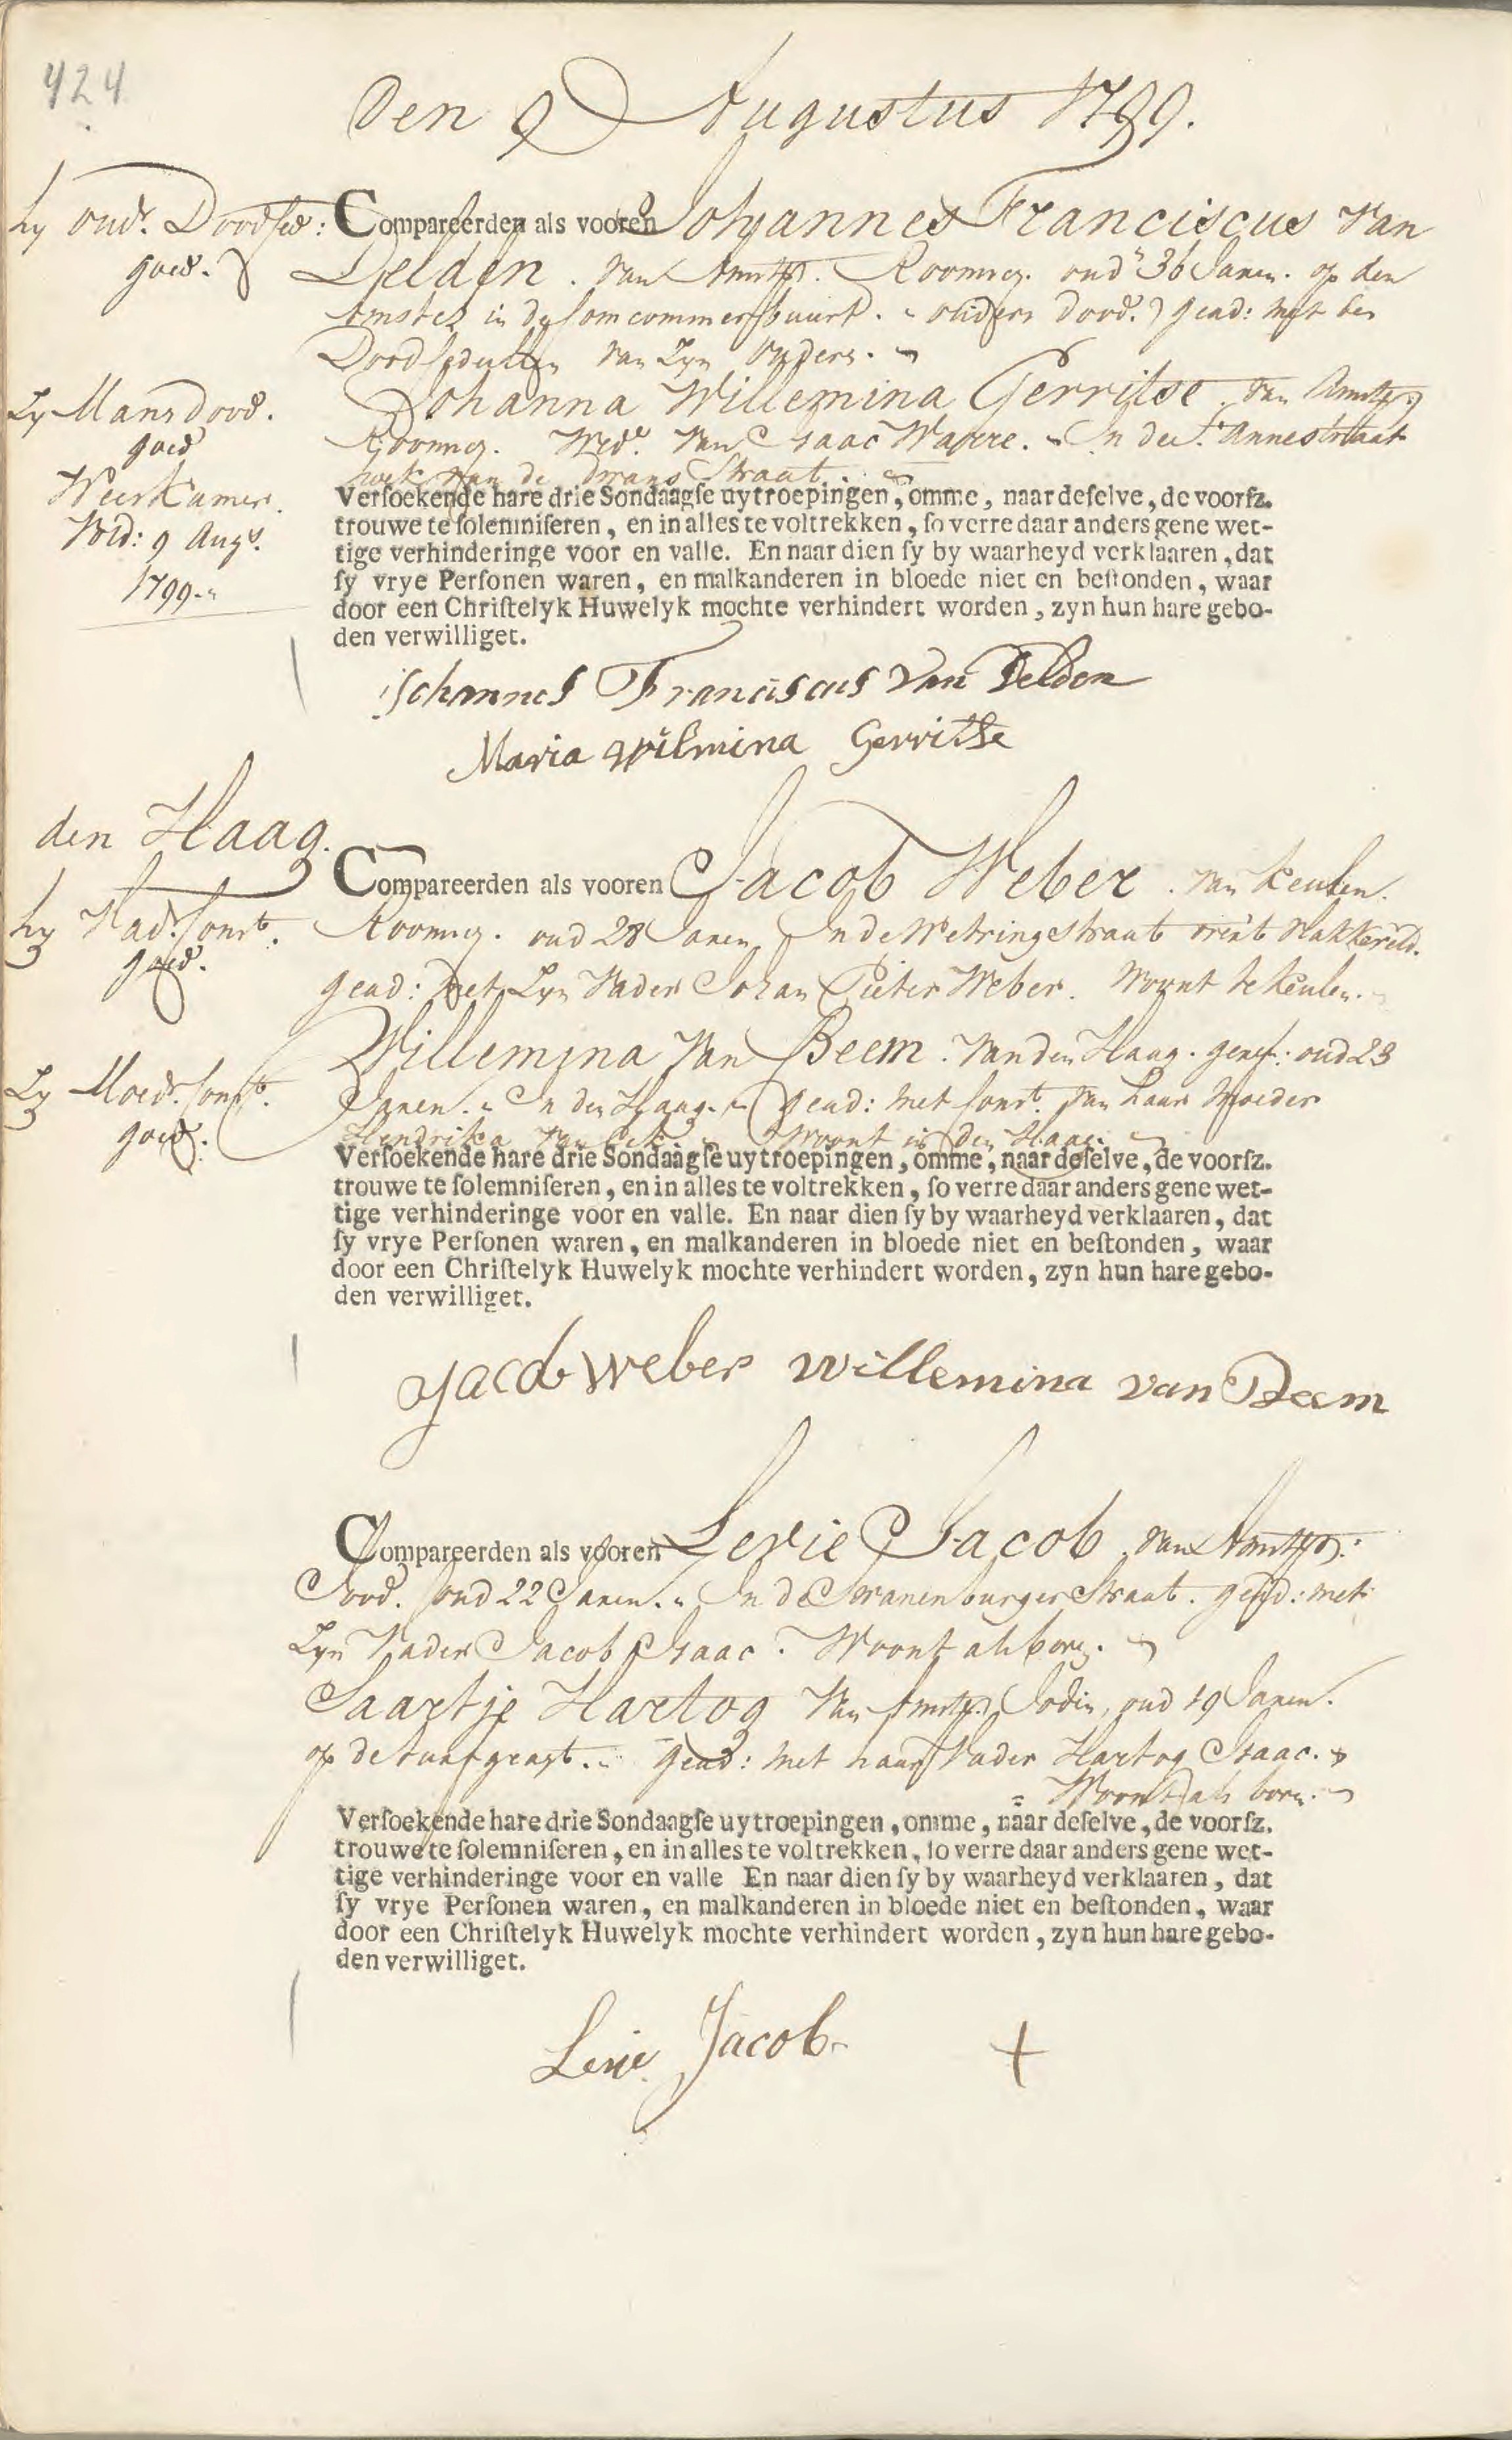 424
Den 9 Augustus 1799.
hy oud.r Doodsed:
goed.
Compareerden als vooren Johannes Franciscus Van
Delden. van Amst. Rooms. oud 36 Jaren. op den
Amstel in de Comcommersbuurt. ouders dood. gead: met
Doodsedullen van Zyn Ouders.
Zy Mans dood.
goed
Weeskamer.
Vold: 9 Aug.s
1799.
Johanna Willemina Gerritse van Amst.
Rooms. Wed.e van Isaac. In de S.t Annestraat
hoek van de Straat.
Versoekende hare drie Sondaagse uytroepingen, omme, naar deselve, de voorsz.
trouwe te solemniseren, en in alles te voltrekken, so verre daar anders gene wet-
tige verhinderinge voor en valle. En naar dien sy by waarheyd verklaaren, dat
sy vrye Personen waren, en malkanderen in bloede niet en bestonden, waar
door een Christelyk Huwelyk mochte verhindert worden, zyn hun hare gebo-
den verwilliget.
Johannes Franciscus van Delden
Maria Wilmina Gerritse
den Haag.
hy Vad. Const.
goed.
Compareerden als vooren Jacob Weber. van Keulen.
Rooms. oud 28 Jaren, In de Wetringstraat
gead: met Zyn Vader Johan Pieter Weber. Woont te Keulen.
Zy Moed. Const.
goed.
Willemina Van Beem. Van den Haag. geref: oud 23
Jaren. In den Haag. gead: met Const. van haar Moeder
Hendrika van Woont in den Haag.
Versoekende hare drie Sondaagse uytroepingen, omme, naar deselve, de voorsz.
trouwe te solemniseren, en in alles te voltrekken, so verre daar anders gene wet-
tige verhinderinge voor en valle. En naar dien sy by waarheyd verklaaren, dat
sy vrye Personen waren, en malkanderen in bloede niet en bestonden, waar
door een Christelyk Huwelyk mochte verhindert worden, zyn hun hare gebo-
den verwilliget.
Jacob Weber Willemina van Beem
Compareerden als vooren Levie Jacob van Amst.
Jood. oud 22 Jaren. In de Oranenburgerstraat. gead: met
Zyn Vader Jacob Isaac. Woont als boven.
Saartje Hartog Van Amst. Jodin, oud 19 Jaren.
op de turfgragt. gead: met haar Vader Hartog Isaac.
Woont als boven.
Versoekende hare drie Sondaagse uytroepingen, omme, naar deselve, de voorsz.
trouwe te solemniseren, en in alles te voltrekken, so verre daar anders gene wet-
tige verhinderinge voor en valle En naar dien sy by waarheyd verklaaren, dat
sy vrye Personen waren, en malkanderen in bloede niet en bestonden, waar
door een Christelyk Huwelyk mochte verhindert worden, zyn hun hare gebo-
den verwilliget.
Levie Jacob +